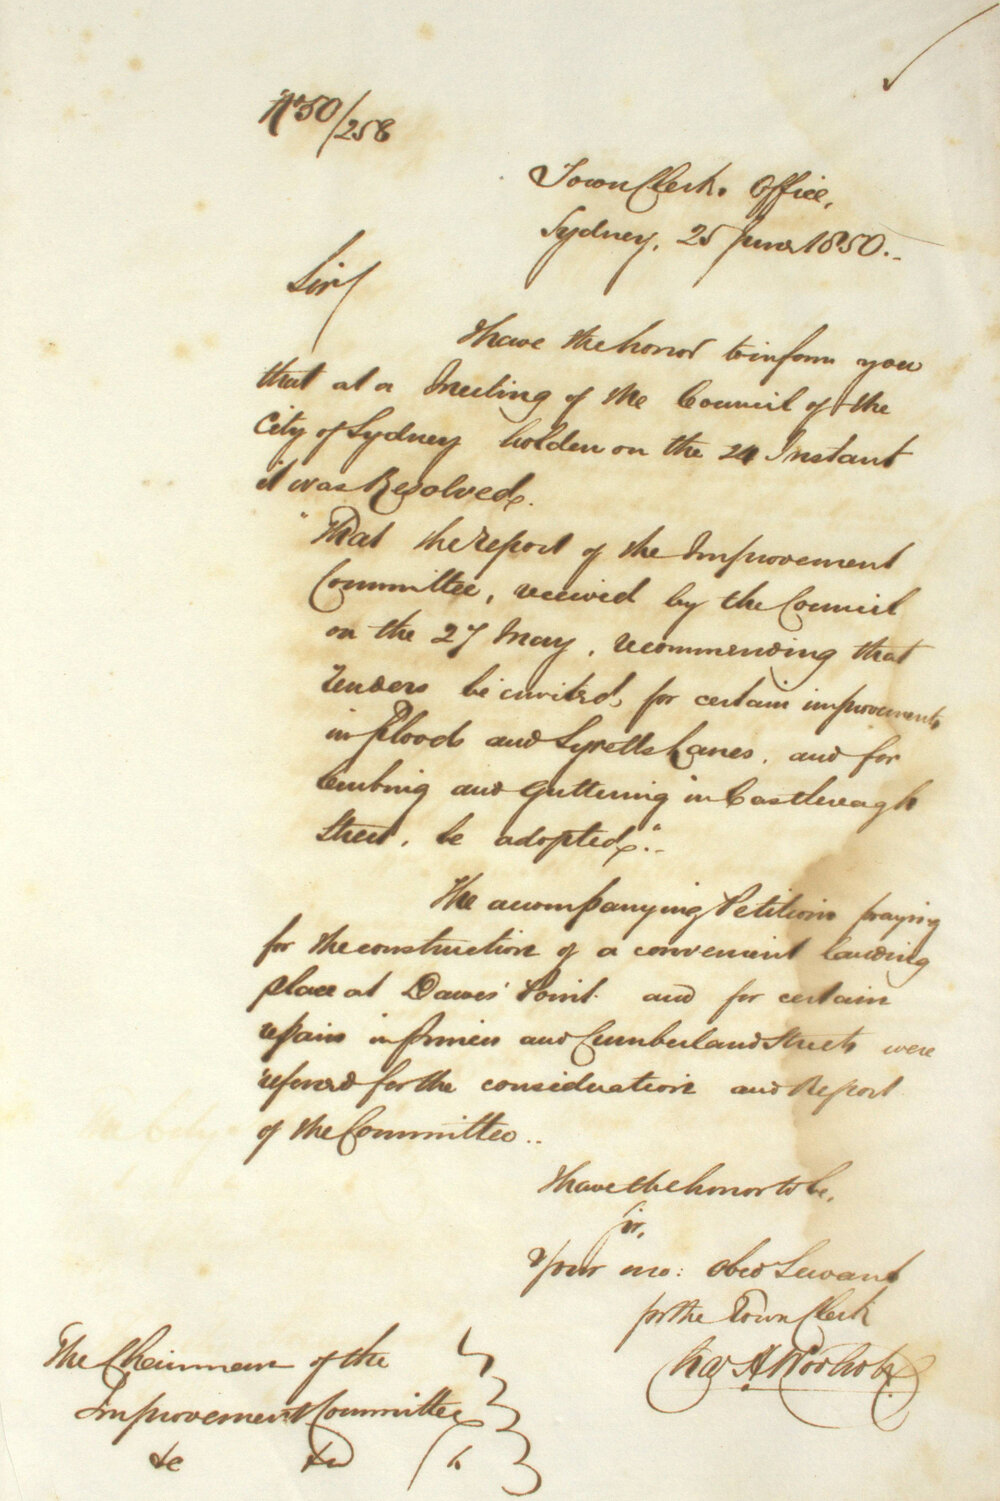 No 50/258
Town Clerks Office,
Sydney, 25 June 1850.-
Sir/
I have the honor to inform you
that at a Meeting of the Council of the
City of Sydney holden on the 24 Instant
it was Resolved.
"That the report of the Improvement
Committee, received by the Council
on the 27 May, recommending that
Tenders be invited, for certain improvements
in Floods and Syretts Lanes, and for
Curbing and Guttering in Castlereagh
Street, be adopted".-
The accompanying Petitions praying
for the construction of a convenient landing
place at Dawes' Point and for certain
repairs in Princes and Cumberland Streets were
referred for the consideration and Report
of the Committee..
I have the honor to be,
Sir,
Your mo: Obed Servant
for the Town Clerk
Chas A
The Chairman of the
Improvement Committee
&c &c &c